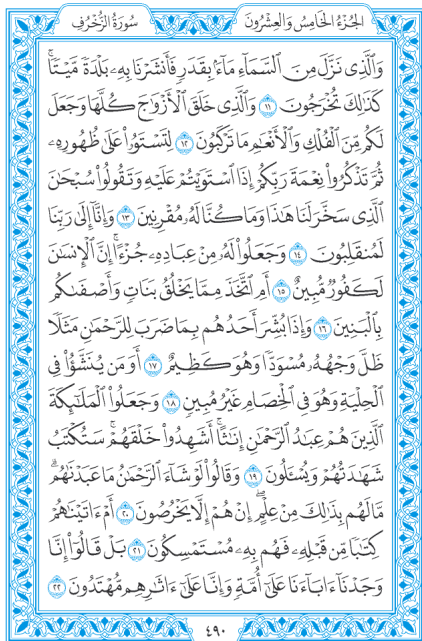 سُورَةُ الزُّخْرُفِ الجُزْءُ الخَامِسُ وَالعِشْرُونَ
وَٱلَّذِى نَزَّلَ مِنَ ٱلسَّمَآءِ مَآءَۢ بِقَدَرٍ فَأَنشَرْنَا بِهِۦ بَلْدَةً مَّيْتًاۚ
كَذَٰلِكَ تُخْرَجُونَ ١١ وَٱلَّذِى خَلَقَ ٱلْأَزْوَٰجَ كُلَّهَا وَجَعَلَ
لَكُم مِّنَ ٱلْفُلْكِ وَٱلْأَنْعَٰمِ مَا تَرْكَبُونَ ١٢ لِتَسْتَوُۥا۟ عَلَىٰ ظُهُورِهِۦ
ثُمَّ تَذْكُرُوا۟ نِعْمَةَ رَبِّكُمْ إِذَا ٱسْتَوَيْتُمْ عَلَيْهِ وَتَقُولُوا۟ سُبْحَٰنَ
ٱلَّذِى سَخَّرَ لَنَا هَٰذَا وَمَا كُنَّا لَهُۥ مُقْرِنِينَ ١٣ وَإِنَّآ إِلَىٰ رَبِّنَا
لَمُنقَلِبُونَ ١٤ وَجَعَلُوا۟ لَهُۥ مِنْ عِبَادِهِۦ جُزْءًاۚ إِنَّ ٱلْإِنسَٰنَ
لَكَفُورٌ مُّبِينٌ ١٥ أَمِ ٱتَّخَذَ مِمَّا يَخْلُقُ بَنَاتٍ وَأَصْفَىٰكُم
بِٱلْبَنِينَ ١٦ وَإِذَا بُشِّرَ أَحَدُهُم بِمَا ضَرَبَ لِلرَّحْمَٰنِ مَثَلًا
ظَلَّ وَجْهُهُۥ مُسْوَدًّا وَهُوَ كَظِيمٌ ١٧ أَوَمَن يُنَشَّؤُا۟ فِى
ٱلْحِلْيَةِ وَهُوَ فِى ٱلْخِصَامِ غَيْرُ مُبِينٍ ١٨ وَجَعَلُوا۟ ٱلْمَلَٰٓئِكَةَ
ٱلَّذِينَ هُمْ عِبَٰدُ ٱلرَّحْمَٰنِ إِنَٰثًاۚ أَشَهِدُوا۟ خَلْقَهُمْۚ سَتُكْتَبُ
شَهَٰدَتُهُمْ وَيُسْـَٔلُونَ ١٩ وَقَالُوا۟ لَوْ شَآءَ ٱلرَّحْمَٰنُ مَا عَبَدْنَٰهُمۗ
مَّا لَهُم بِذَٰلِكَ مِنْ عِلْمٍۖ إِنْ هُمْ إِلَّا يَخْرُصُونَ ٢٠ أَمْ ءَاتَيْنَٰهُمْ
كِتَٰبًا مِّن قَبْلِهِۦ فَهُم بِهِۦ مُسْتَمْسِكُونَ ٢١ بَلْ قَالُوٓا۟ إِنَّا
وَجَدْنَآ ءَابَآءَنَا عَلَىٰٓ أُمَّةٍ وَإِنَّا عَلَىٰٓ ءَاثَٰرِهِم مُّهْتَدُونَ ٢٢
٤٩٠